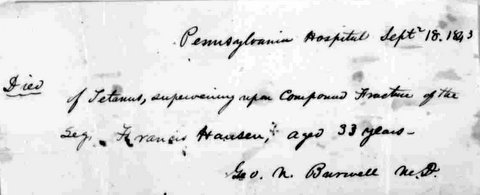 Pennsylvania Hospital Septr 18. 1843
Died
of Tetanus, supervening upon Compound Fracture of the
Leg, Francis Hansen, aged 33 years-
Geo. N. Burwell M.D.